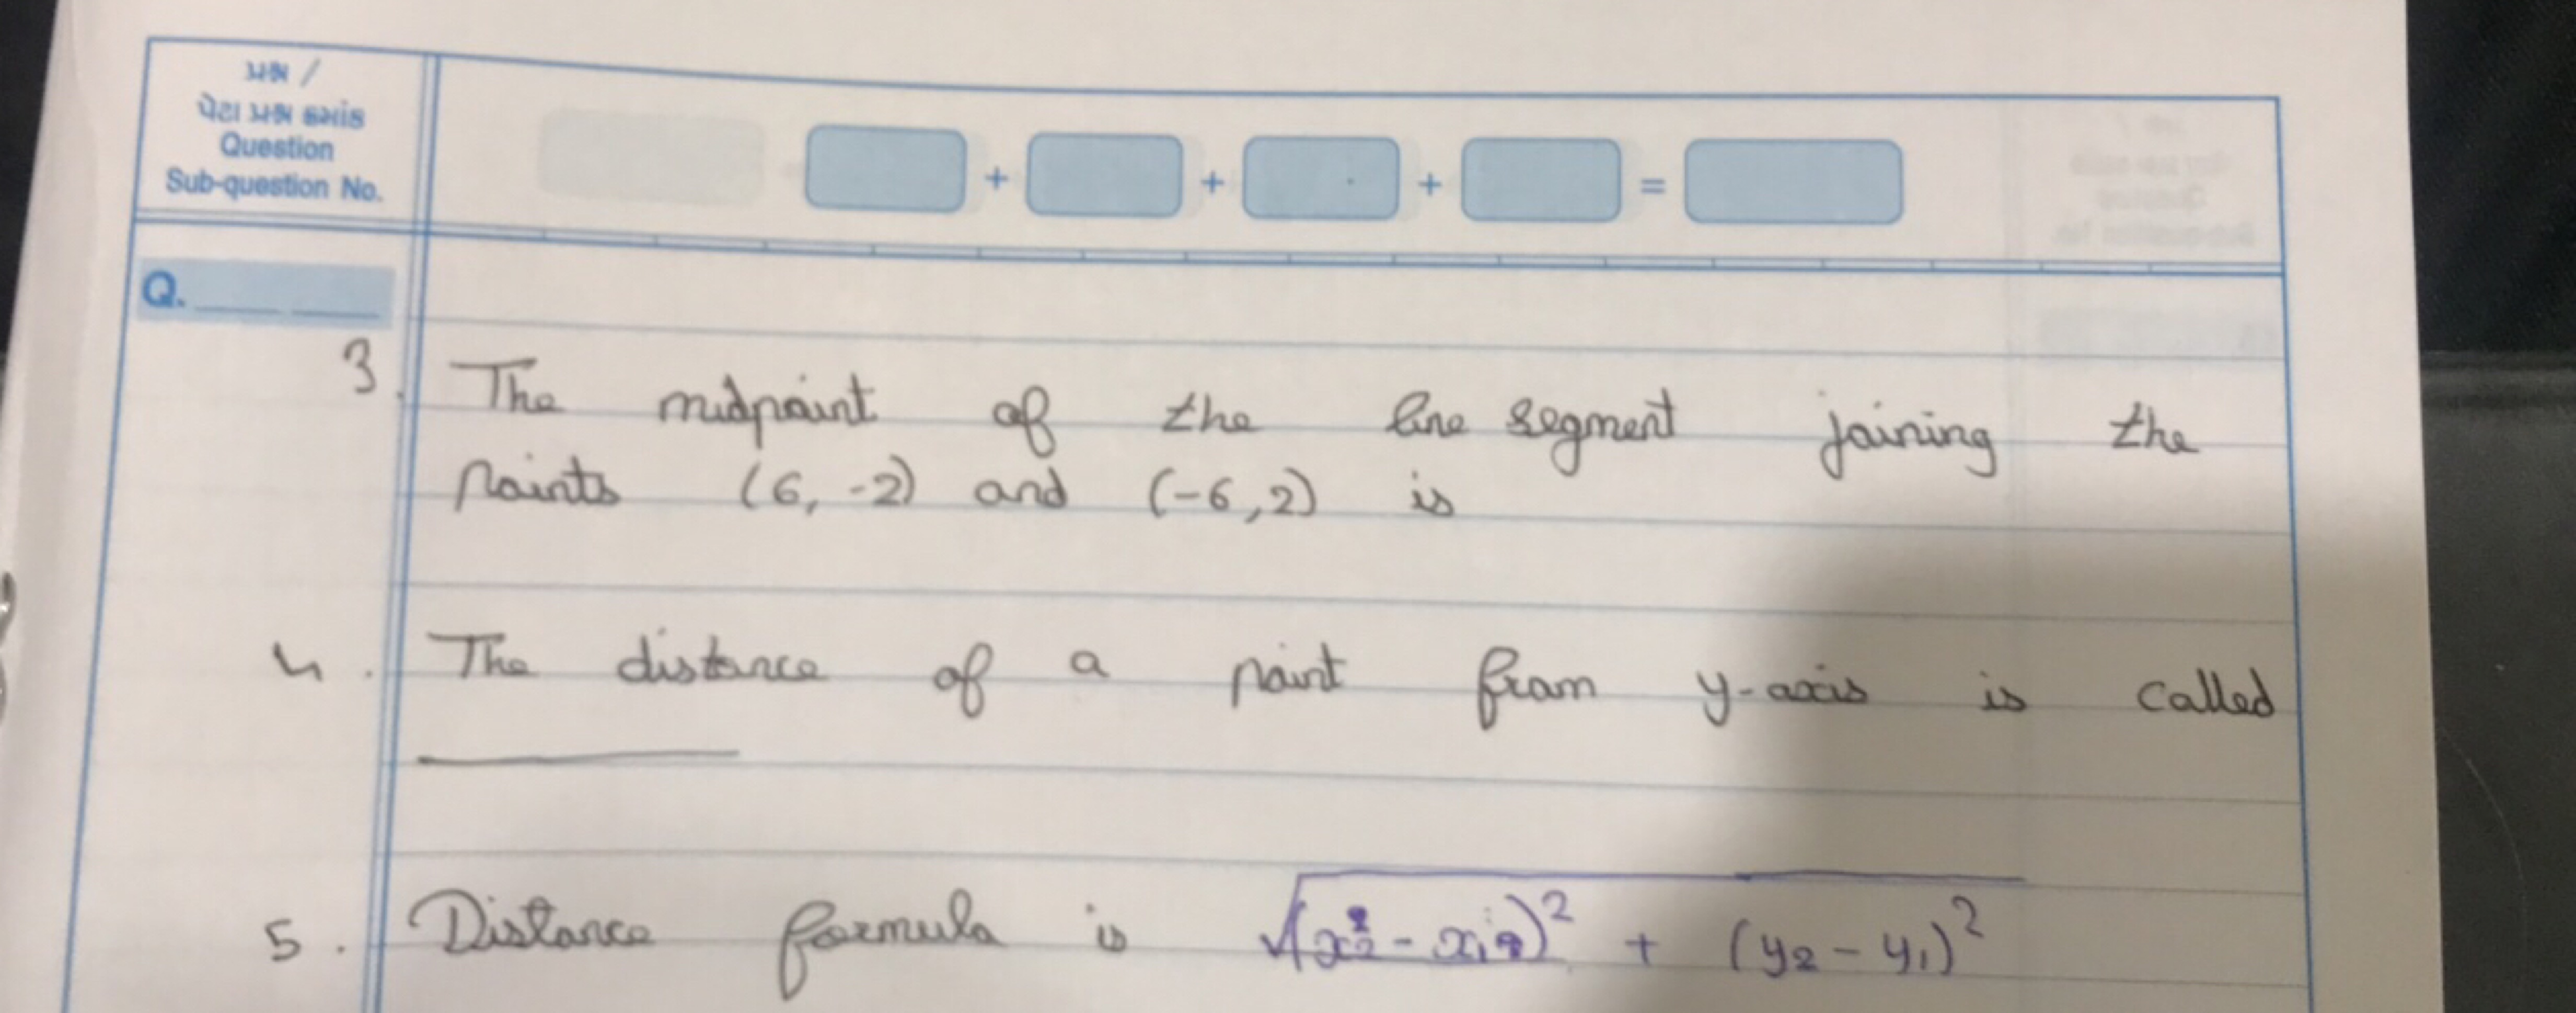 પ્રશ્ન /
પેટા પ્રશ્ન ક્રમાંક
Question
Sub-question No.
+ + + =
Q. ____ ____
3. The midpoint of the line segment joining the
points (6, -2) and (-6, 2) is
4. The distance of a point from y-axis is called
________
5. Distance formula is √(x₂ - x₁)² + (y₂ - y₁)²